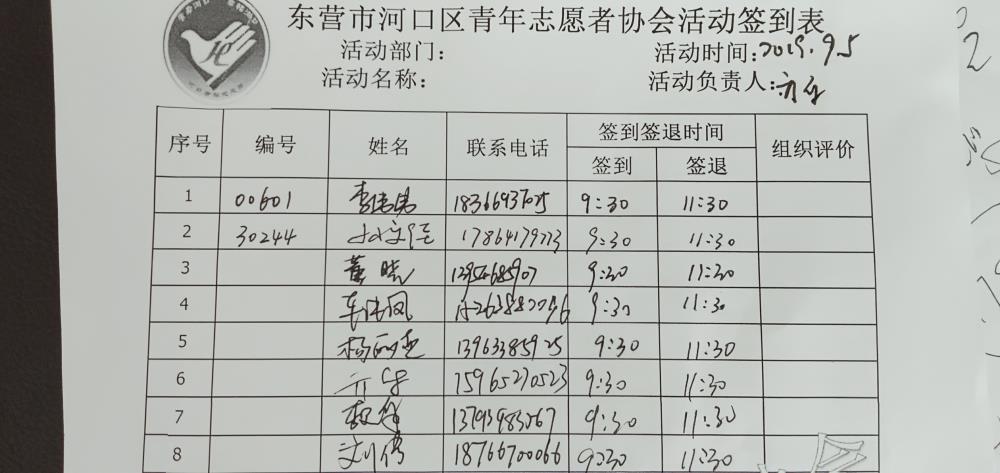 东营市河口区青年志愿者协会活动签到表
活动部门: 活动时间:2019.9.5
活动名称: 活动负责人:
序号 编号 姓名 联系电话 签到签退时间 组织评价
签到 签退
1 00601 9:30 11:30
2 30244 17864179773 9:30 11:30
3 董晓 9:30 11:30
4 车伟凤 9:30 11:30
5 杨丽杰 13963385925 9:30 11:30
6 15965270523 9:30 11:30
7 13793983067 9:30 11:30
8 刘伟 18766700066 9:30 11:30